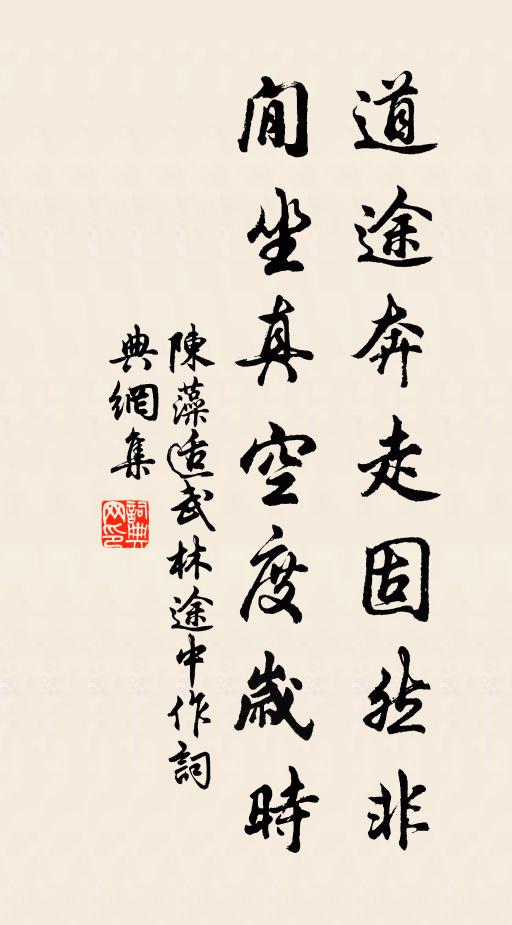 道途奔走固然非
閒坐真空度歲時
陳藻适武林途中作詞
典網集
詞典
网印